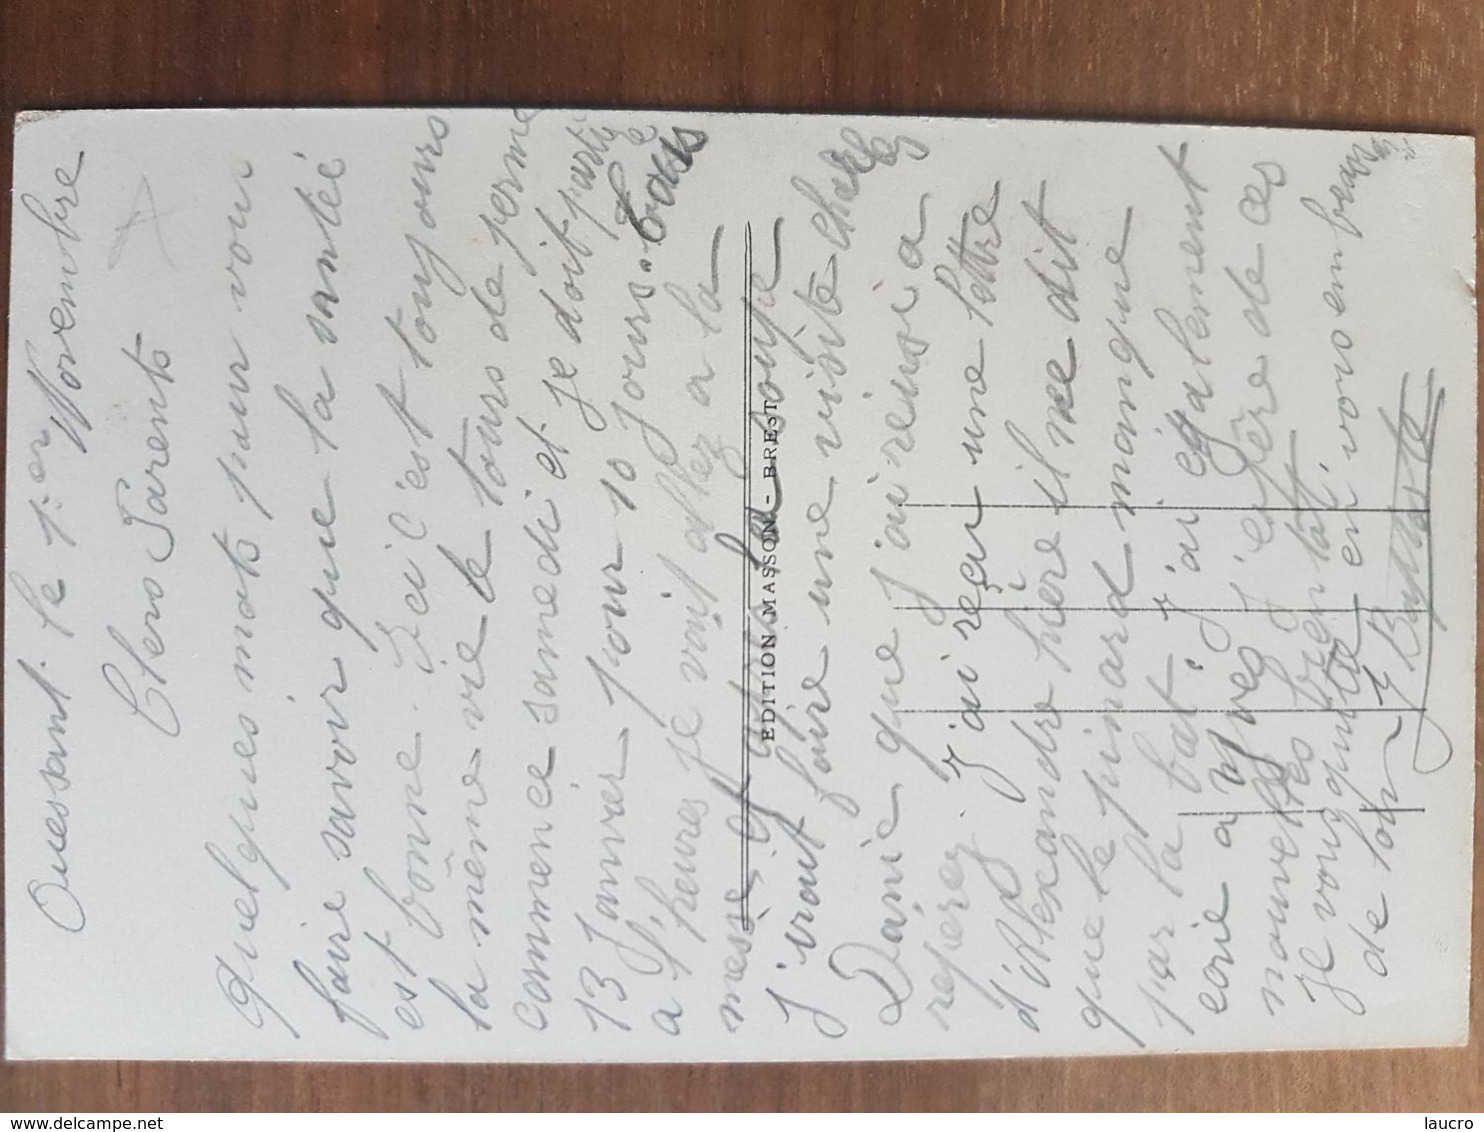 Ouessant. le 1.er Novembre
Chers Parents
Quelques mots pour vous
faire savoir que la santée
est bonne. Ici c'est toujours
la même vie le tours de perme
commence samedi et je doit partir
13 Janvier pour 10 jours. tous le
a heures je vais allez a la
messe et après la soupe
j'irait faire une visite chez
Danie que j'ai reussi a
repérez. j'ai reçu une lettre
d'Alexandre hière il me dit
que le pinard manque
par la bat. j'ai également
ecrie a Yves j'espère de ces
nouvelles bientôt.
Je vous quitte en vous embrass
de loin
EDITION MASSON - BREST
laucro